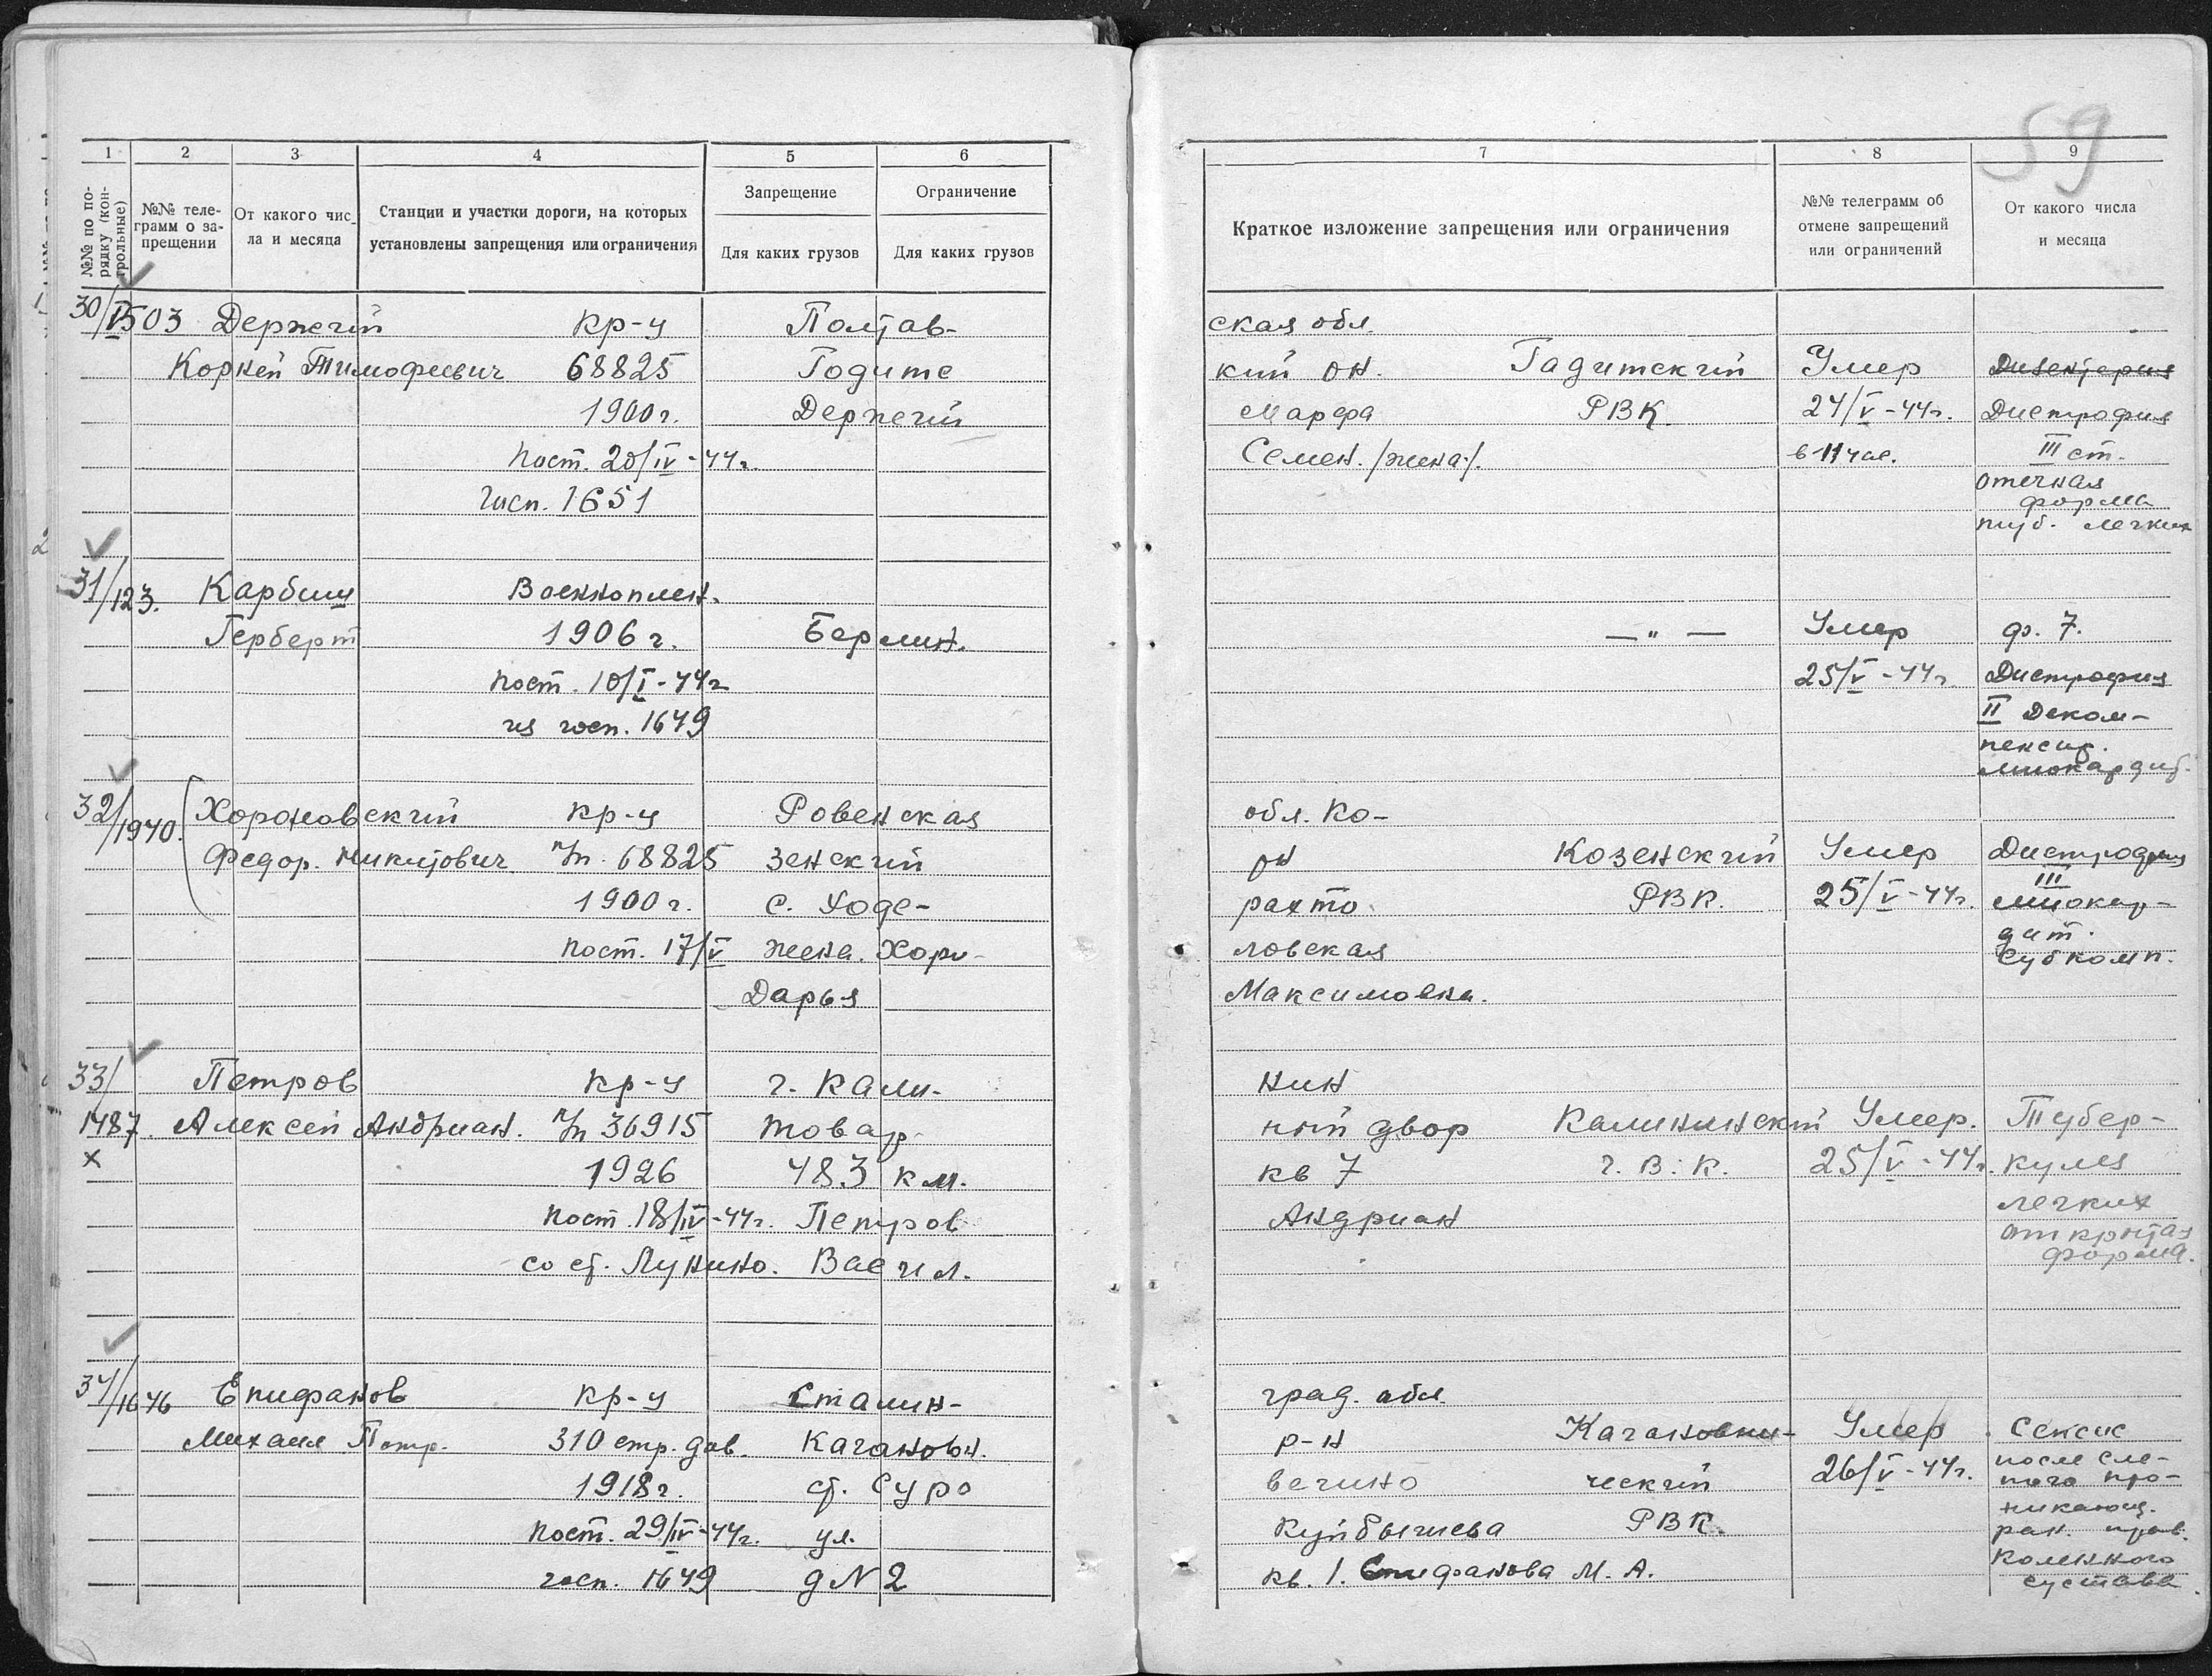 59
1 2 3 4 5 6
№№ по по-
рядку (кон-
трольные)
№№ теле-
грамм о за-
прещении
От какого чис-
ла и месяца
Станции и участки дороги, на которых
установлены запрещения или ограничения
Запрещение
Для каких грузов
Ограничение
Для каких грузов
7 8 9
Краткое изложение запрещения или ограничения
№№ телеграмм об
отмене запрещений
или ограничений
От какого числа
и месяца
30/1503 Держгий кр-ц Полтав- ская обл.
Корней Тимофеевич 68825 Годите кий он. Гадитский Умер Дизентерия
1900 г. Держгий Марфа РВК 24/V-44г. Дистрофия
пост. 20/IV-44г. Семен. /жена/. в 11 час. III ст.
Гисп. 1651 отечная
форма
туб. легких
31/123. Карбиш Военноплен.
Герберт 1906 г. Берлин. —"— Умер ф. 7.
пост. 10/I-44г 25/V-44г. Дистрофия
из госп. 1649 II Деком-
пенсир.
миокардит.
32/1940. Хороновский кр-ц Ровенская обл. Ко-
Федор. Никитович п/п. 68825 зенский он Козенский Умер Дистрофия
1900 г. с. Ходе- рахто РВК. 25/V-44г. III миокар-
пост. 17/V жена. Хоро- ловская дит.
Субкомп.
Дарья Максимовна.
33/ Петров кр-ц г. Кали- нин
1487. Алексей Андриан. п/п 36915 товар- ный двор Калининский Умер. Тубер-
х 1926 483 км. кв 7 Г.В.К. 25/V-44г. кулез
пост. 18/IV-44г. Петров Андриан легких
со ст. Лунино. Васил. открытая
форма.
34/1646 Епифанов кр-ц Сталин- град. обл.
Михаил Петр. 310 стр. див. Каганович. р-н Каганови- Умер Сепсис
1918г. ст. Суро вечино ческий 26/V-44г. после сле-
пого про-
пост. 29/IV-44г. ул. Куйбышева РВК. никающ.
ран. прав.
госп. 1649 д N 2 кв. 1. Епифанова М. А. коленного
сустава.